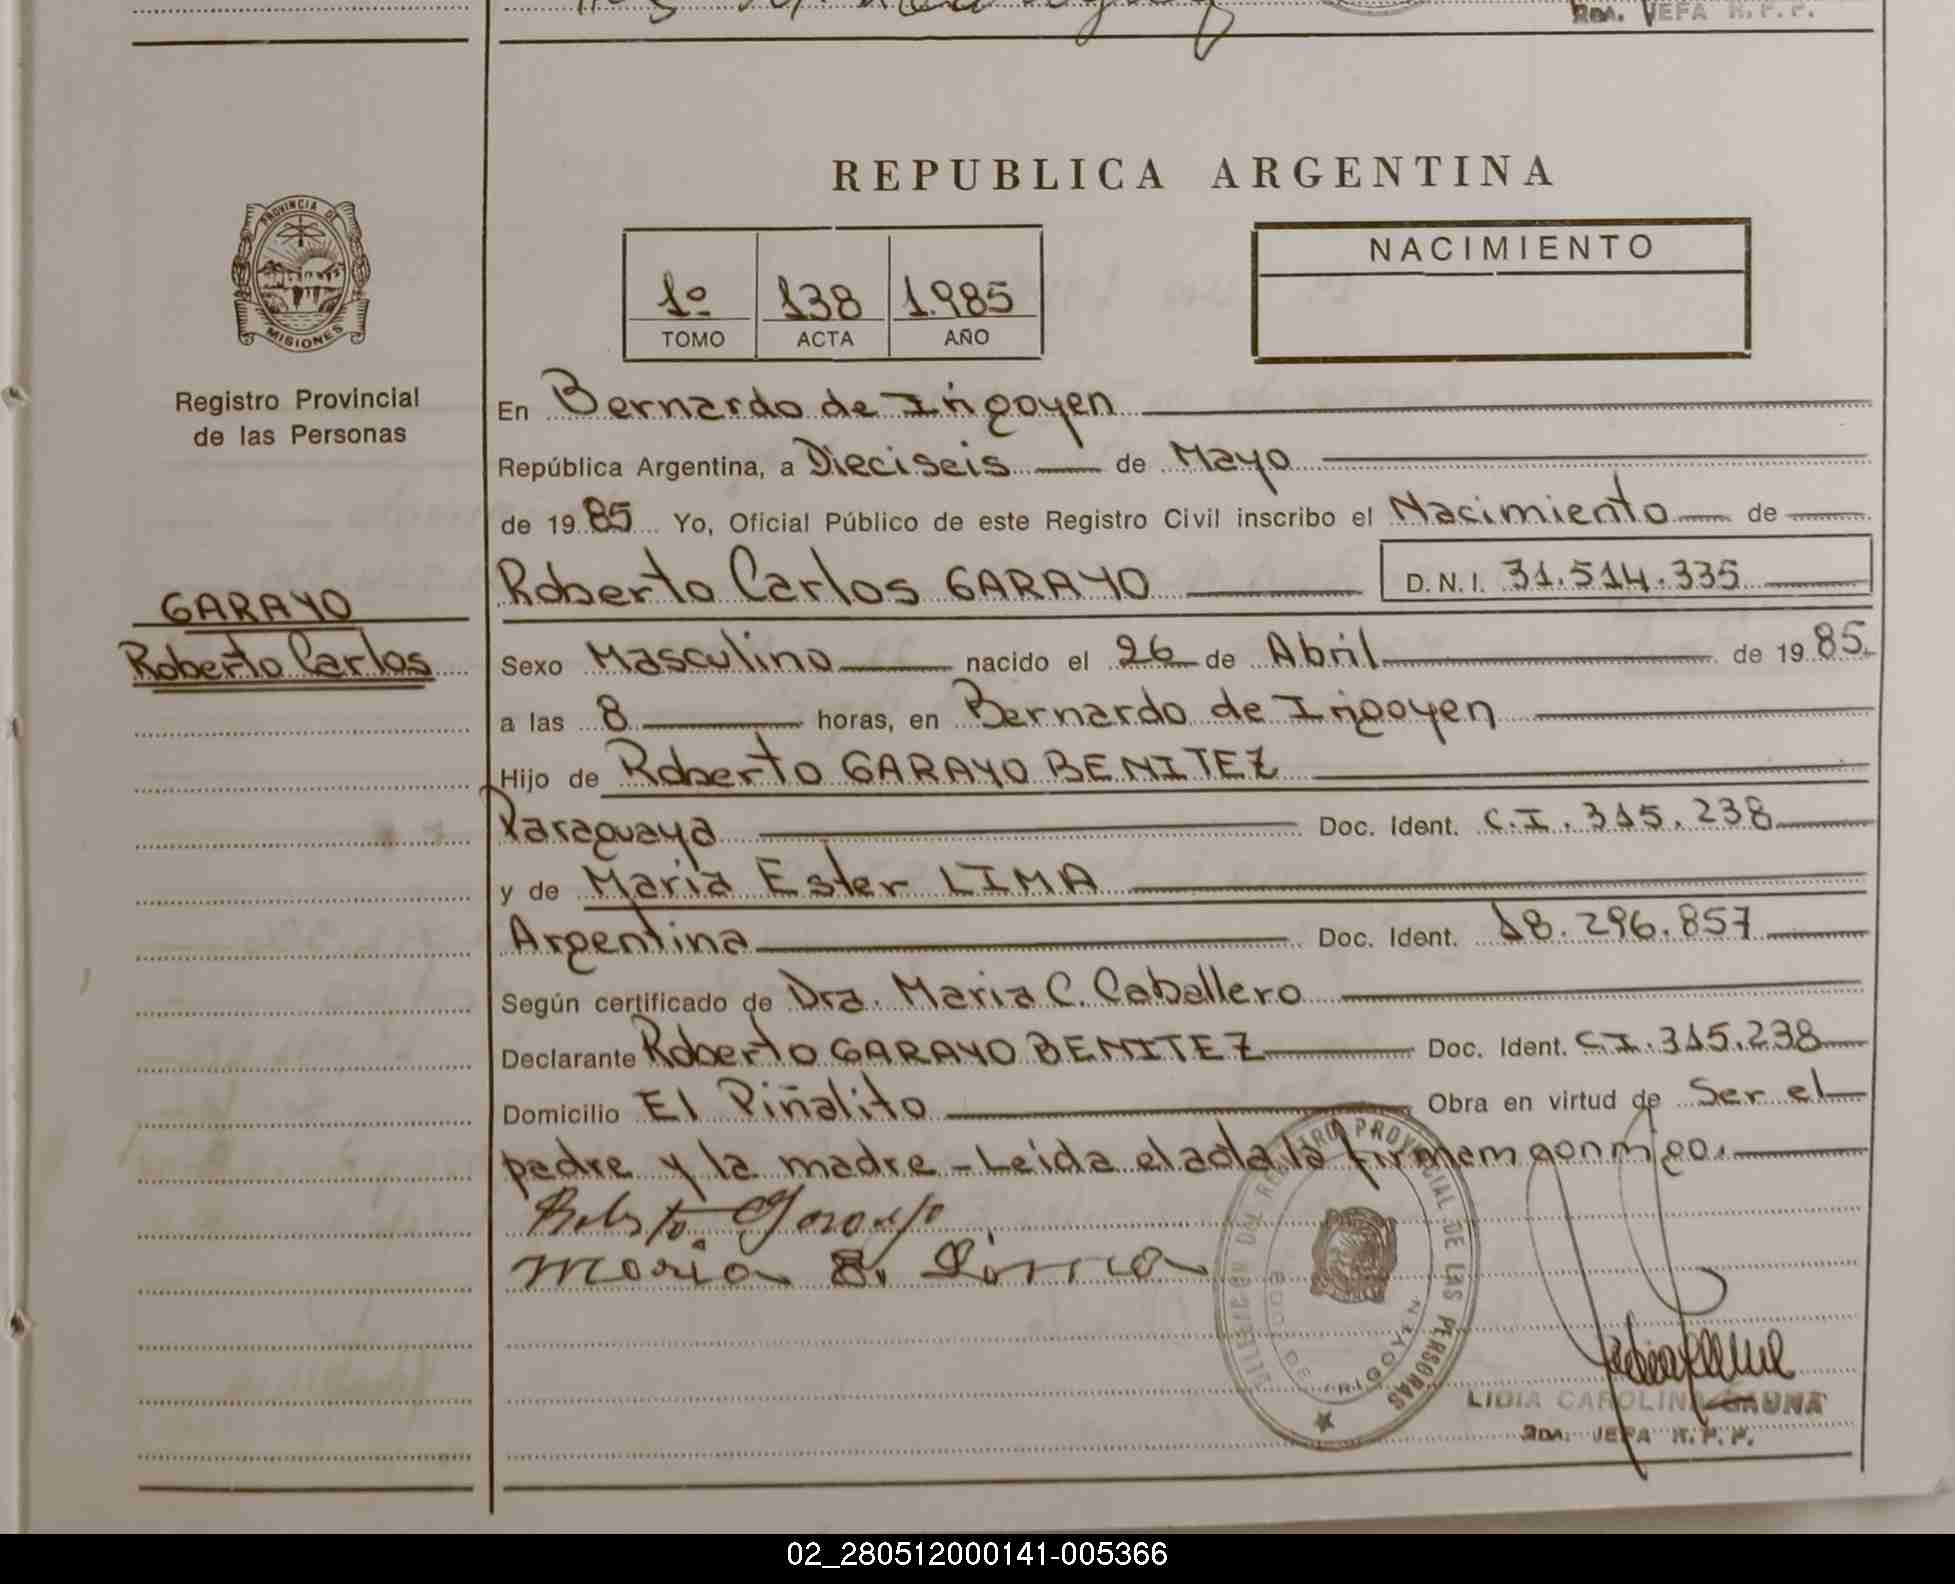 Rda. JEFA R.P.P.
REPUBLICA ARGENTINA
PROVINCIA DE
MISIONES
Registro Provincial
de las Personas
1º 138 1.985
TOMO ACTA AÑO
NACIMIENTO
En Bernardo de Irigoyen
República Argentina, a Dieciseis de Mayo
de 1985 Yo, Oficial Público de este Registro Civil inscribo el Nacimiento de
Roberto Carlos GARAYO D.N.I. 31.514.335
GARAYO
Roberto Carlos
Sexo Masculino nacido el 26 de Abril de 1985.
a las 8 horas, en Bernardo de Irigoyen
Hijo de Roberto GARAYO BENITEZ
Paraguaya Doc. Ident. C.I. 315.238
y de Maria Ester LIMA
Argentina Doc. Ident. 18.296.857
Según certificado de Dra. Maria C. Caballero
Declarante Roberto GARAYO BENITEZ Doc. Ident. C.I. 315.238
Domicilio El Piñalito Obra en virtud de Ser el
padre y la madre - Leida el acta la firman conmigo.
Roberto Garayo
Maria E. Lima
DELEGACION DEL REGISTRO PROVINCIAL DE LAS PERSONAS
BDO. DE IRIGOYEN
LIDIA CAROLINA GAUNA
Rda. JEFA R.P.P.
02_280512000141-005366